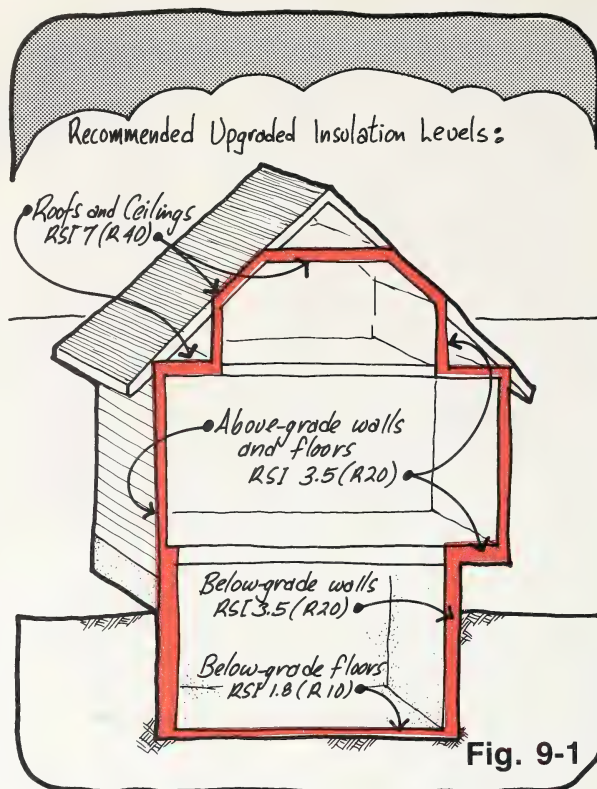 Recommended Upgraded Insulation Levels:
Roofs and Ceilings
RSI 7 (R40)
Above-grade walls
and floors
RSI 3.5 (R20)
Below-grade walls
RSI 3.5 (R20)
Below-grade floors
RSI 1.8 (R10)
Fig. 9-1